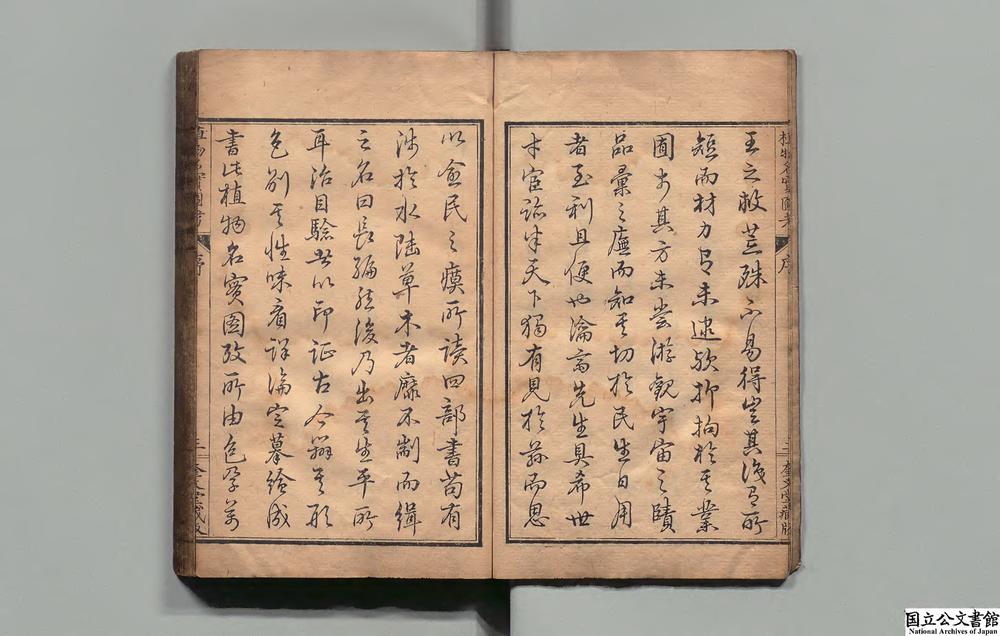 植物名實圖考 序 二 奎文堂藏版
王之救荒殊不易得豈其識有所
短而材力有未逮歟抑拘於其業
囿其方未嘗游觀宇宙之賾
品彙之廡而知其切於民生日用
者至利且便也瀹齋先生具希世
才宦跡半天下獨有見於茲而思
以愈民之瘼所讀四部書苟有
涉於水陸草木者靡不剬而緝
之名曰長編然後乃出其生平所
耳治目驗者以印證古今辨其形
色別其性味看詳論定摹繪成
書此植物名實圖攷所由包孕萬
植物名實圖考 序 三 奎文堂藏版
国立公文書館
National Archives of Japan